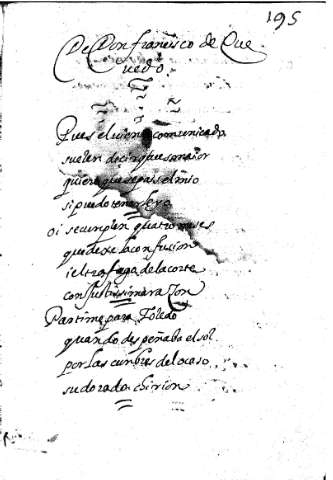 195
De Don francisco de Que
vedo
Pues el bien comunicado
suelen decir que es maior
quiero que sepais el mio
si puedo tener
oi se cumplen quatro meses
que dexe la confusion
i el trafago de la corte
con justissima razon
Partime para Toledo
quando despeñaba el sol
por las cunbres del ocaso
su dorado chirrion